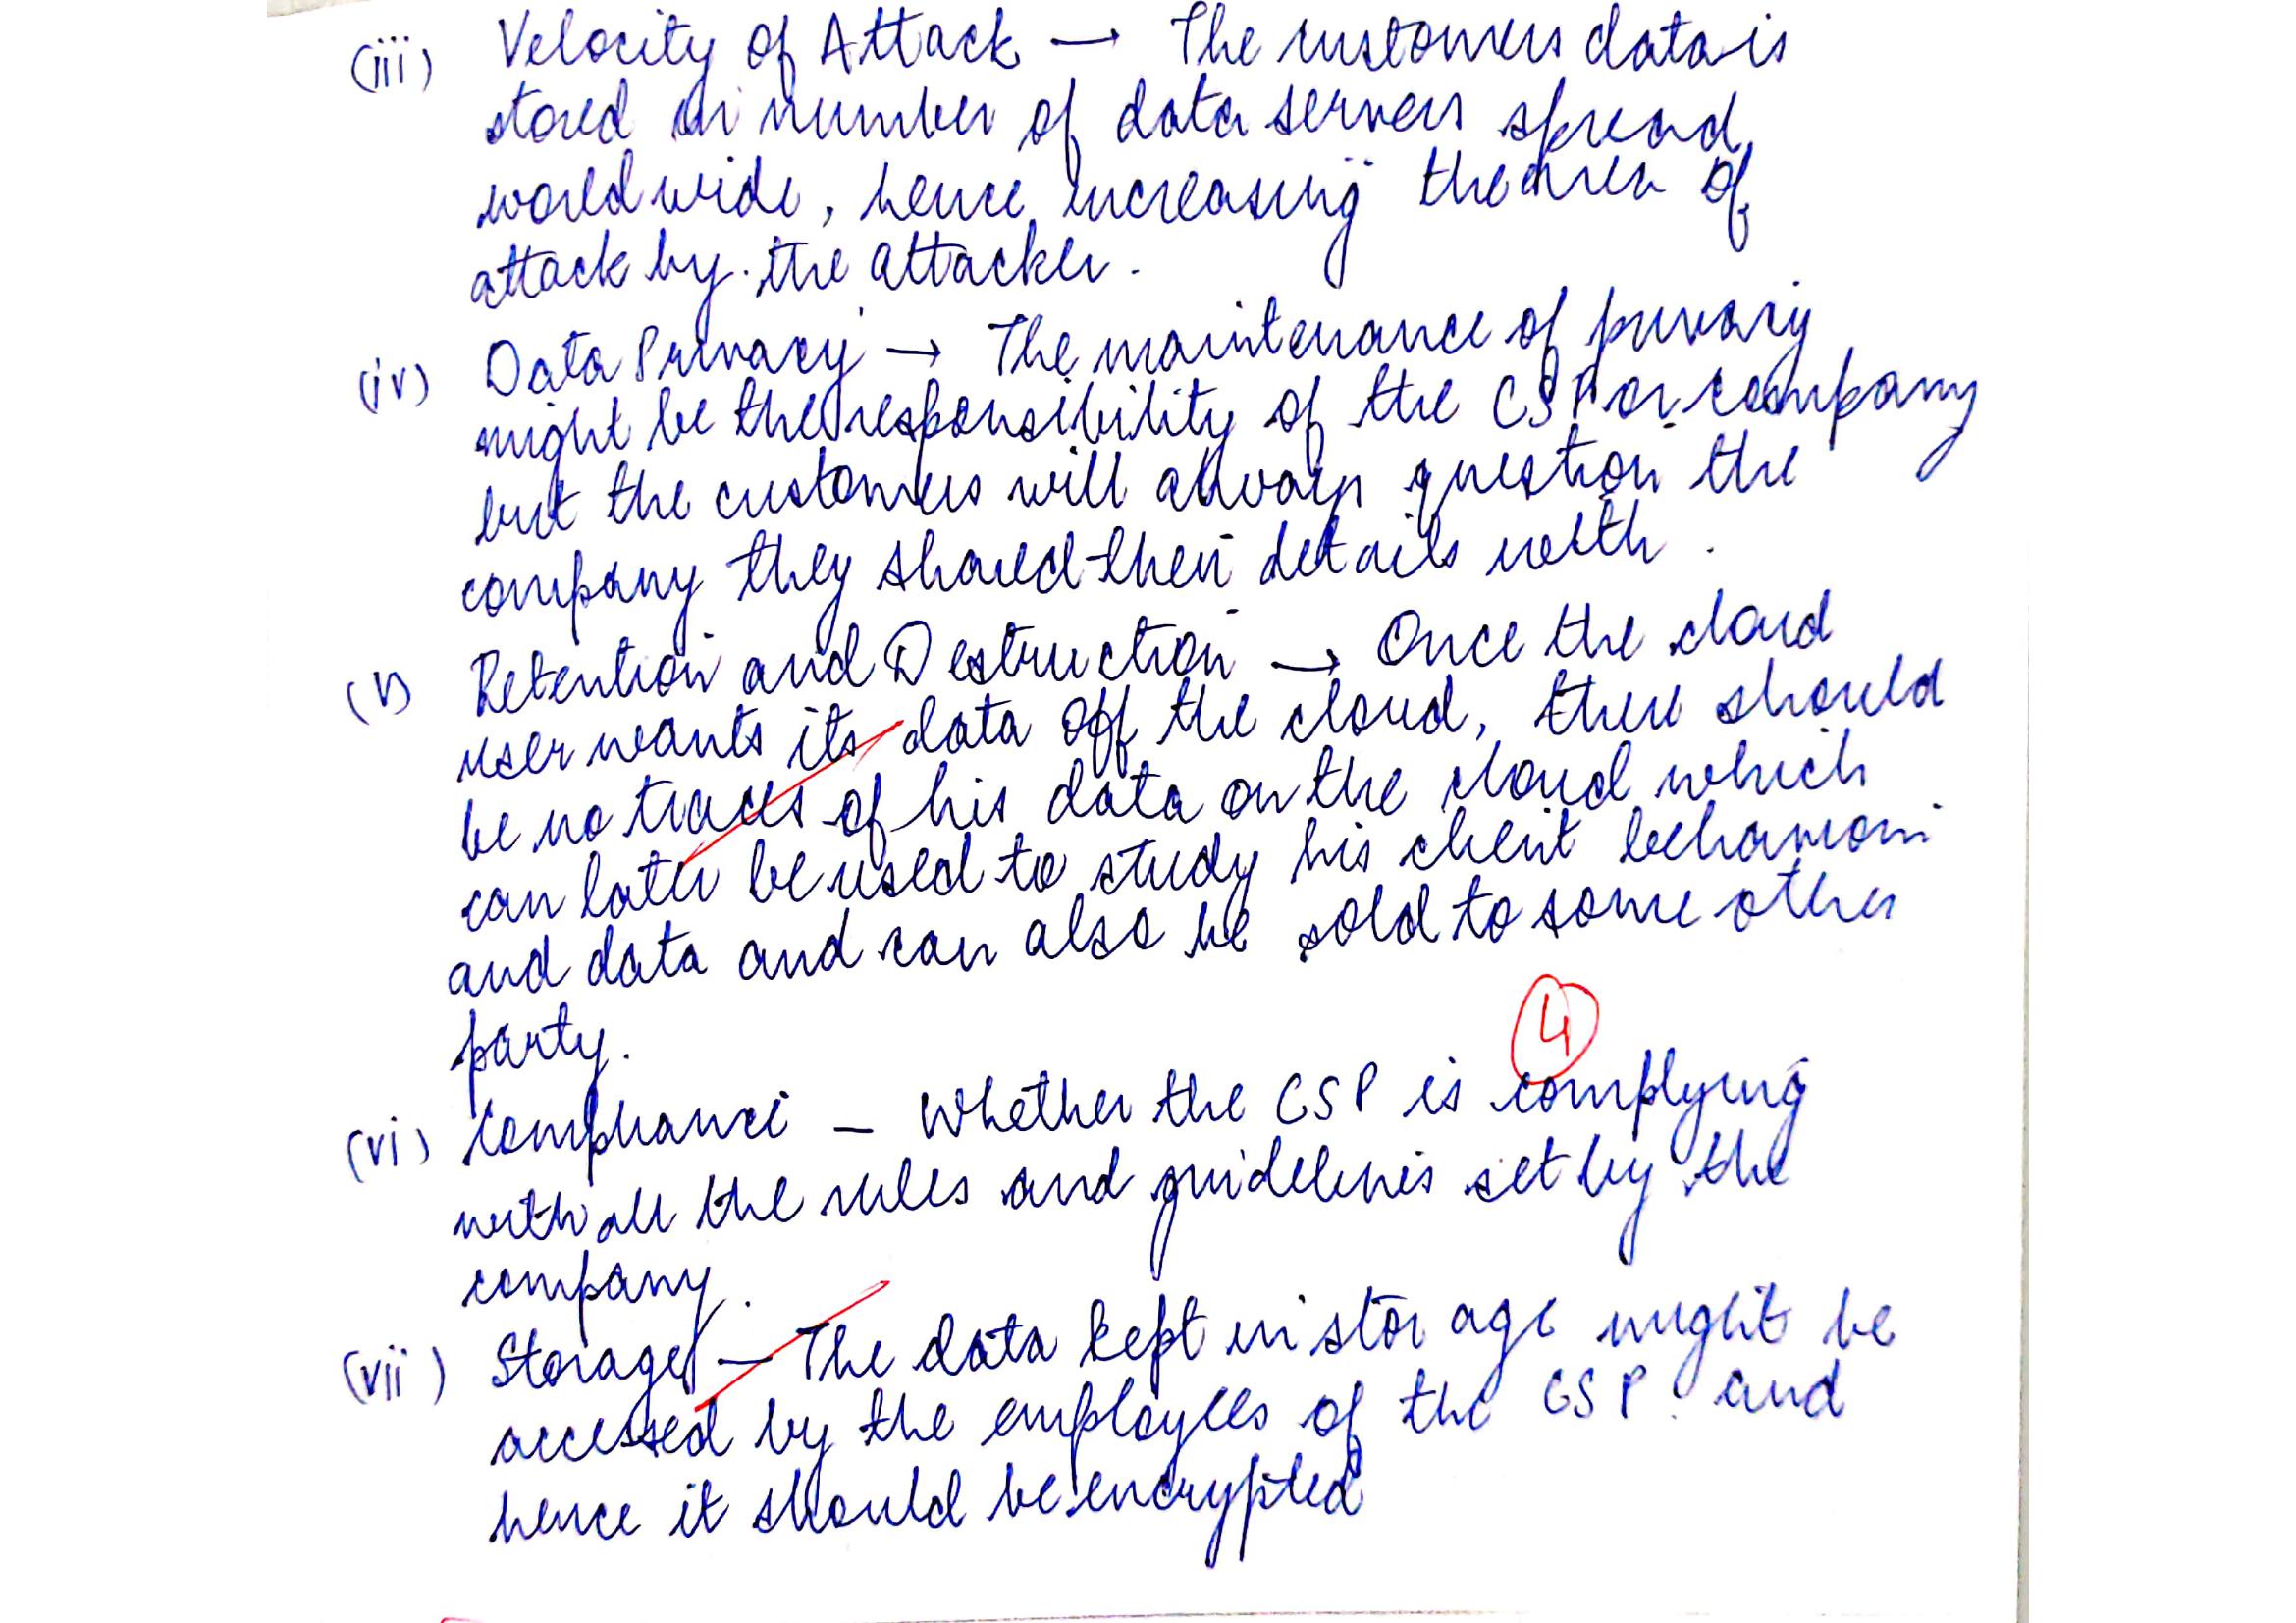 (iii) Velocity of Attack → The customers data is
stored on number of data servers spread
world wide, hence increasing the area of
attack by the attacker.
(iv) Data Privacy → The maintenance of privacy
might be the responsibility of the CSP or company
but the customers will always question the
company they shared their details with.
(v) Retention and Destruction → Once the cloud
user wants its data off the cloud, there should
be no traces of his data on the cloud which
can later be used to study his client behaviour
and data and can also be sold to some other
party.
4
(vi) Compliance – Whether the CSP is complying
with all the rules and guidelines set by the
company.
(vii) Storage – The data kept in storage might be
accessed by the employees of the CSP and
hence it should be encrypted